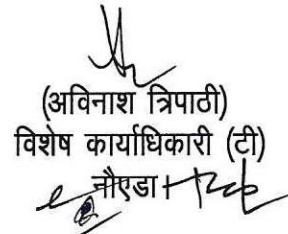 (अविनाश त्रिपाठी)
विशेष कार्याधिकारी (टी)
नौएडा।